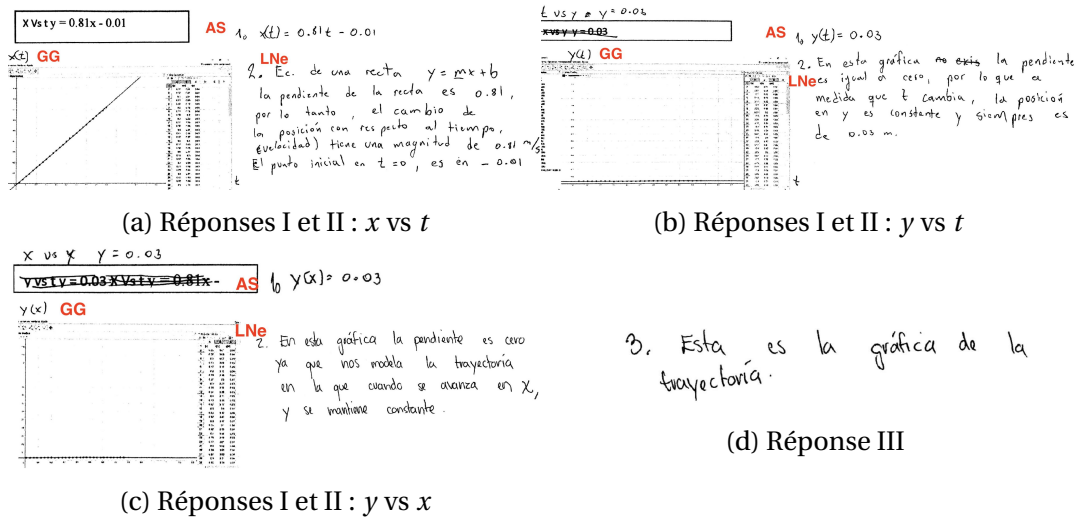 X Vs t y = 0.81x - 0.01
AS
1. x(t) = 0.81t - 0.01
x(t)
GG
LNe
2. Ec. de una recta y = mx + b
la pendiente de la recta es 0.81,
por lo tanto, el cambio de
la posición con respecto al tiempo,
(velocidad) tiene una magnitud de 0.81 m/s
El punto inicial en t = 0, es en - 0.01
t
(a) Réponses I et II : x vs t
t vs y y = 0.03
x vs y y = 0.03
AS
1. y(t) = 0.03
y(t)
GG
LNe
2. En esta gráfica no exis la pendiente
es igual a cero, por lo que a
medida que t cambia, la posición
en y es constante y siempres es
de 0.03 m.
t
(b) Réponses I et II : y vs t
X vs Y Y = 0.03
y vs t y = 0.03 X Vs t y = 0.81x -
AS
1. y(x) = 0.03
y(x)
GG
LNe
2. En esta gráfica la pendiente es cero
ya que nos modela la trayectoria
en la que cuando se avanza en X,
y se mantiene constante.
(c) Réponses I et II : y vs x
3. Esta es la gráfica de la
trayectoria.
(d) Réponse III